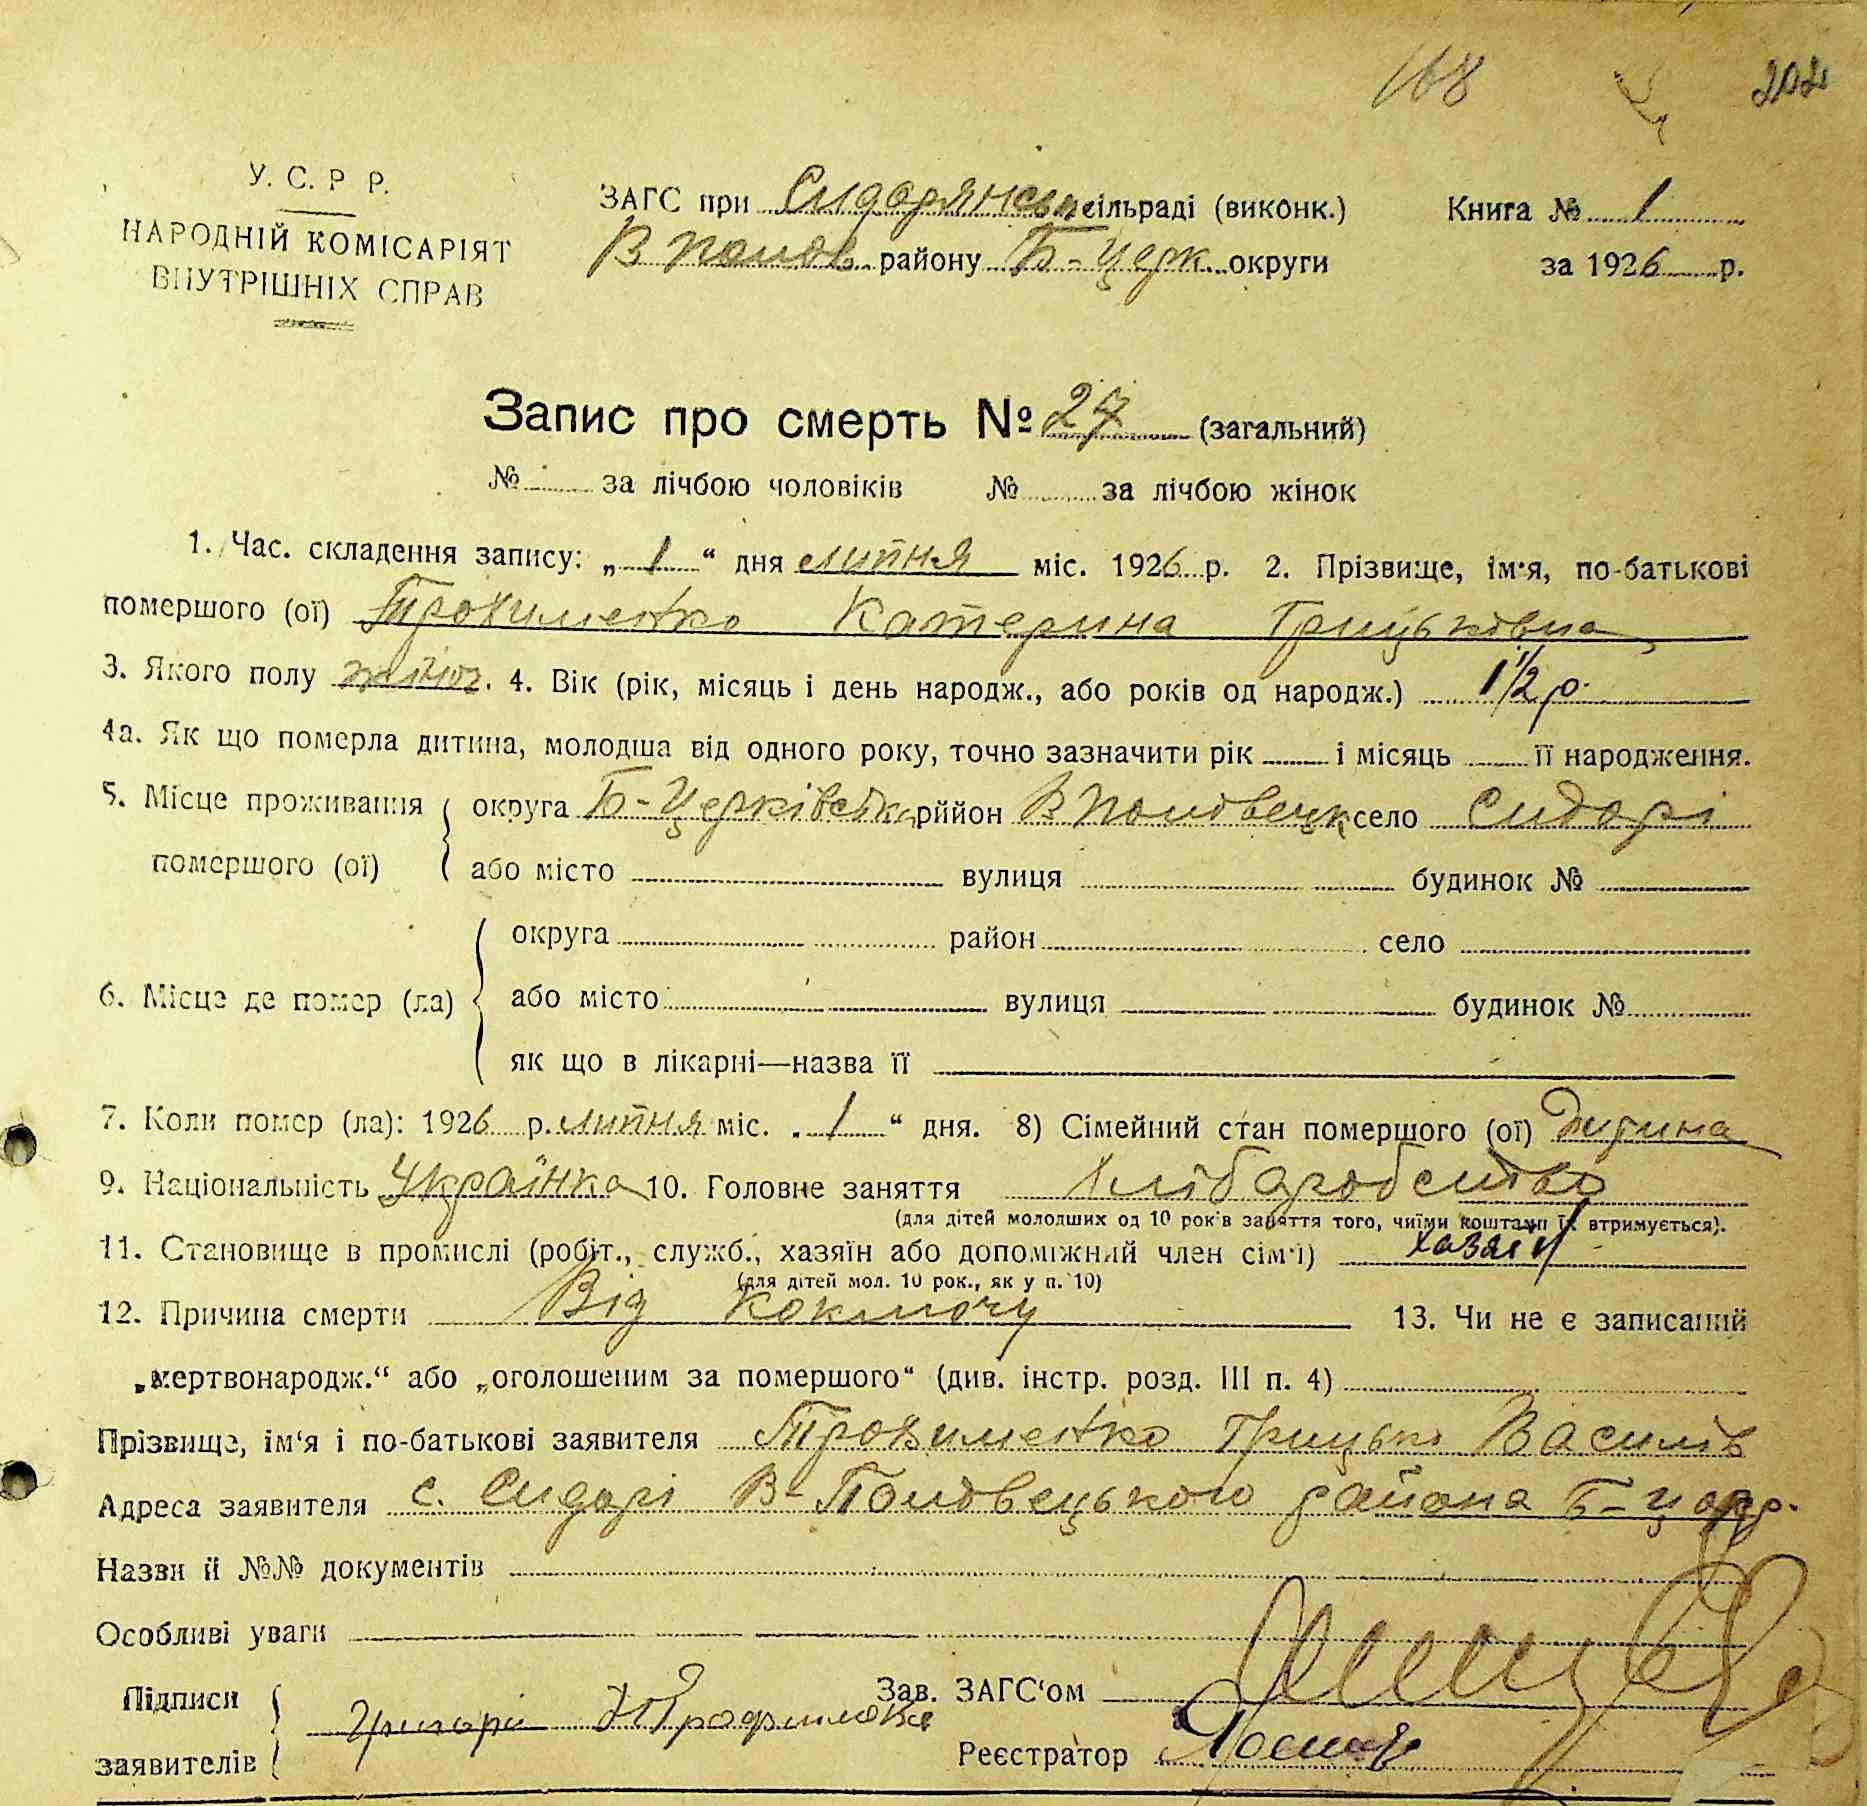 168 202
У. С. Р Р.
НАРОДНІЙ КОМІСАРІЯТ
ВНУТРІШНІХ СПРАВ
ЗАГС при Сидорянській сільраді (виконк.) Книга № 1
В Полов. району Б-Церк. округи за 1926 р.
Запис про смерть № 27 (загальний)
№ за лічбою чоловіків № за лічбою жінок
1. Час. складення запису: „1“ дня липня міс. 1926 р. 2. Прізвище, ім'я, по-батькові
помершого (ої) Трохименко Катерина Грицьківна
3. Якого полу жіноч. 4. Вік (рік, місяць і день народж., або років од народж.) 1 1/2 р.
4а. Як що померла дитина, молодша від одного року, точно зазначити рік і місяць її народження.
5. Місце проживання помершого (ої) округа Б-Церківська рййон В Половецьк село Сидорі
або місто вулиця будинок №
6. Місце де помер (ла) округа район село
або місто вулиця будинок №
як що в лікарні—назва її
7. Коли помер (ла): 1926 р. липня міс. „1“ дня. 8) Сімейний стан помершого (ої) Дитина
9. Національність Українка 10. Головне заняття хліборобство
(для дітей молодших од 10 рок'в заняття того, чиїми коштами їх втримується).
11. Становище в промислі (робіт., служб., хазяїн або допоміжний член сім'ї) хазяїн
(для дітей мол. 10 рок., як у п. 10)
12. Причина смерти Від коклюшу 13. Чи не є записаний
„мертвонародж.“ або „оголошеним за помершого“ (див. інстр. розд. III п. 4)
Прізвище, ім‘я і по-батькові заявителя Трохименко Грицько Василів
Адреса заявителя с. Сидорі В-Половецького района Б-Церк.
Назви й №№ документів
Особливі уваги
Підписи заявителів Григорій Трофименко
Зав. ЗАГС‘ом
Реєстратор